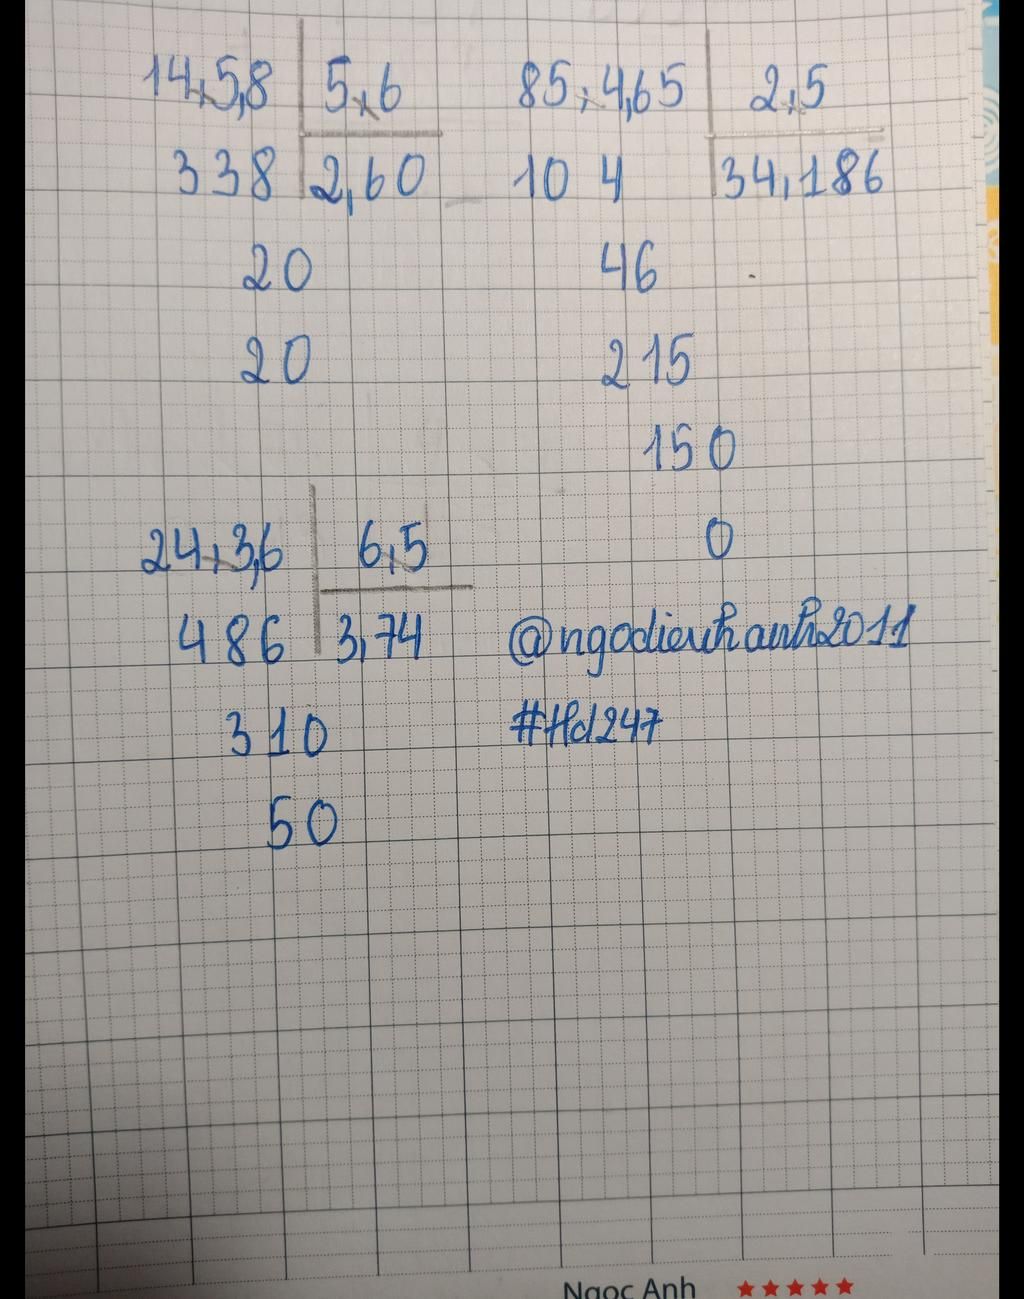 14,5,8 5,6
338 2,60
20
20
85,4,65 2,5
10 4 34,186
46
215
150
0
24,3,6 6,5
486 3,74
310
50
@ngodieukhanh2011
#Hd247
Ngọc Anh ★★★★★